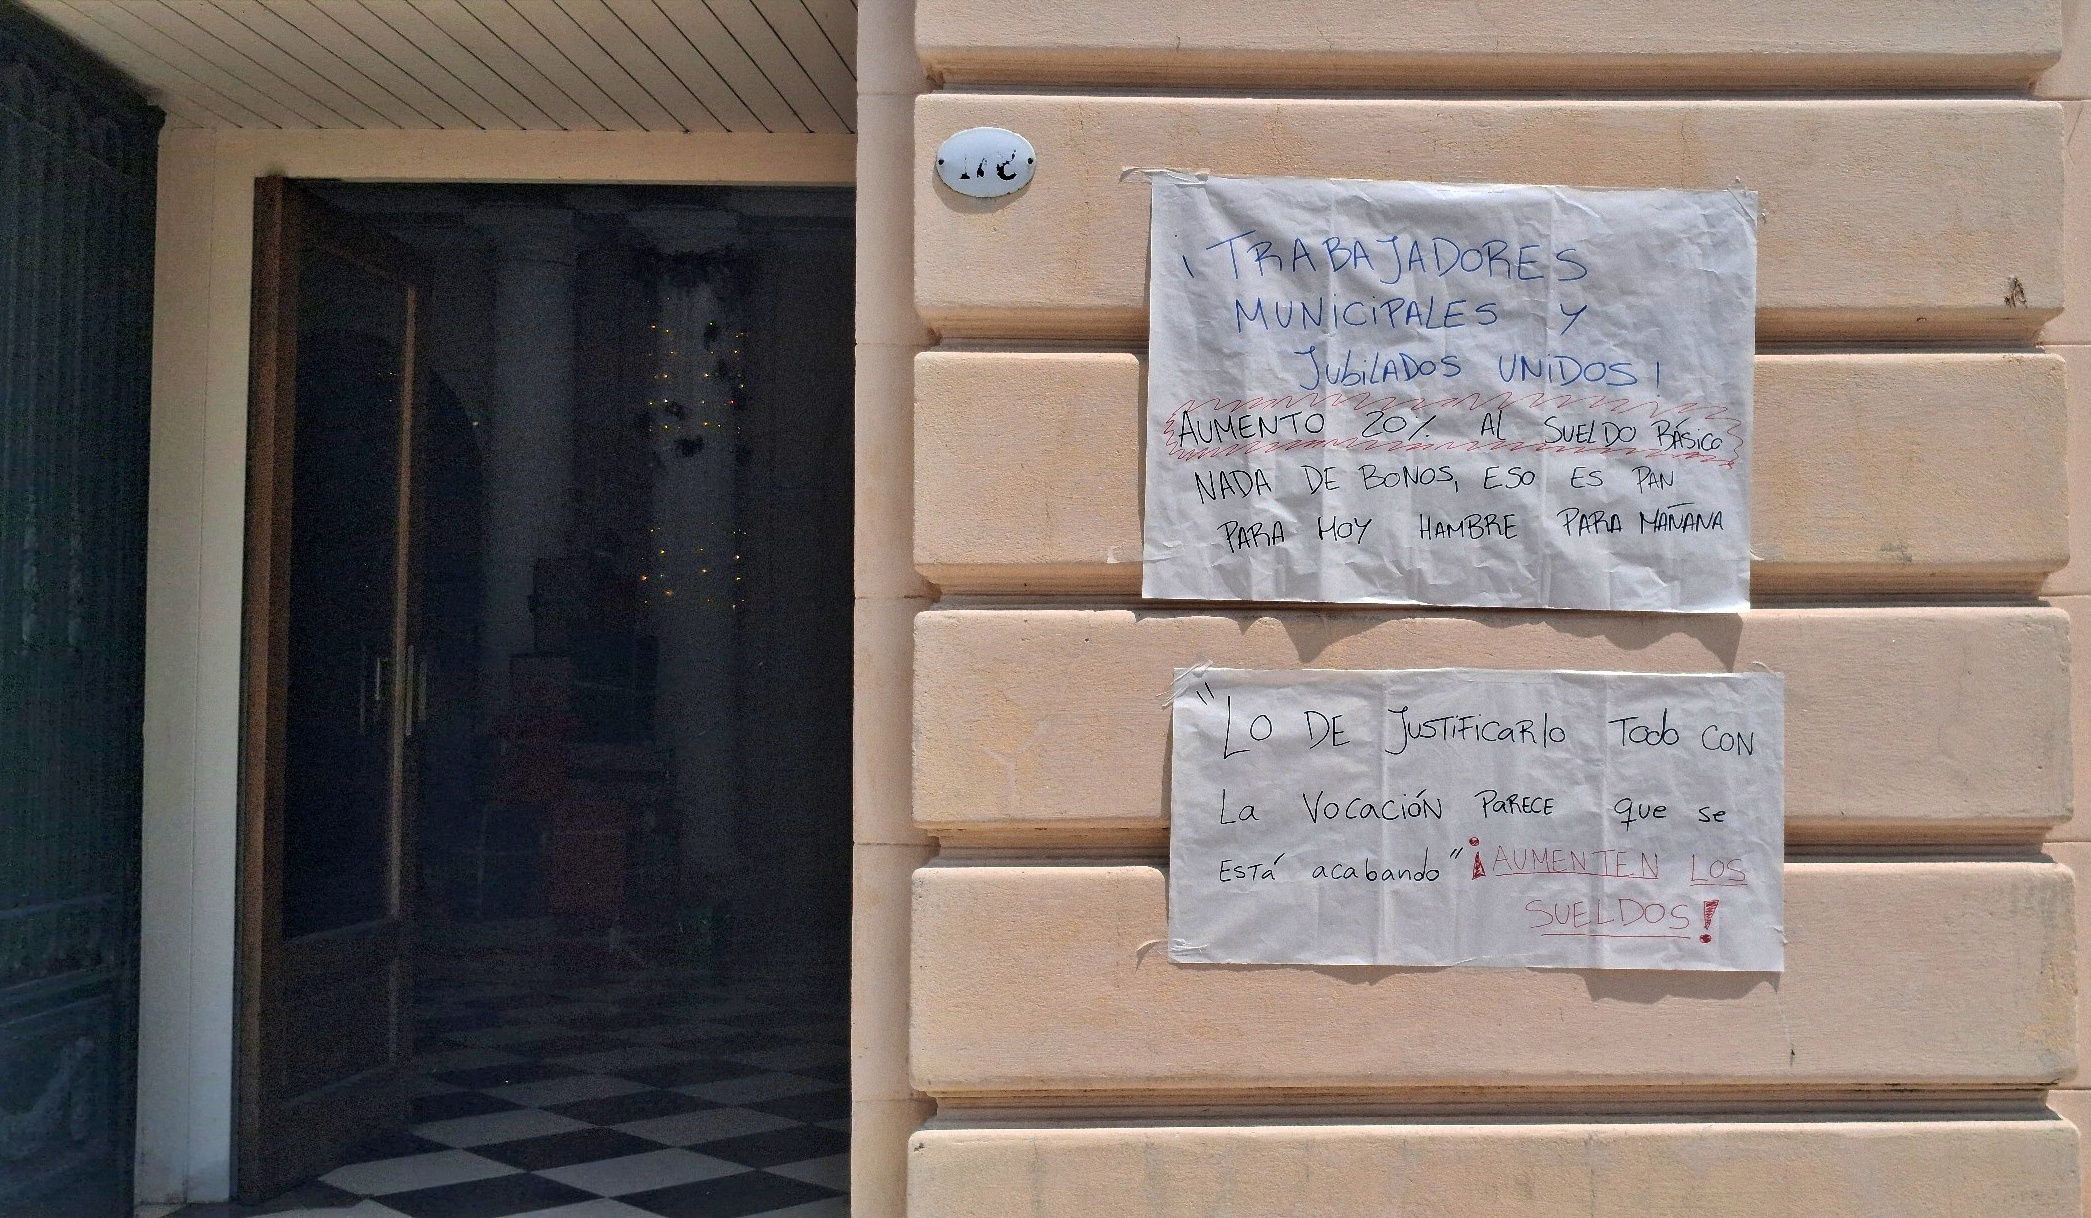 ¡TRABAJADORES
MUNICIPALES Y
JUBILADOS UNIDOS!
AUMENTO 20% AL SUELDO BÁSICO
NADA DE BONOS, ESO ES PAN
PARA HOY HAMBRE PARA MAÑANA
"LO DE JUSTIFICARLO TODO CON
LA VOCACIÓN PARECE QUE SE
ESTÁ acabando" ¡AUMENTEN LOS
SUELDOS!